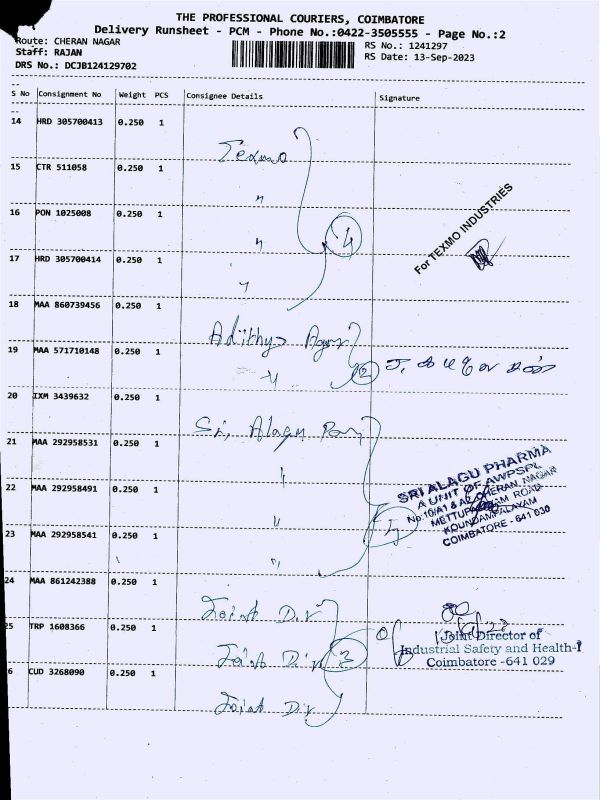 THE PROFESSIONAL COURIERS, COIMBATORE
Delivery Runsheet - PCM - Phone No.:0422-3505555 - Page No.:2
Route: CHERAN NAGAR
Staff: RAJAN
DRS No.: DCJB124129702
RS No.: 1241297
RS Date: 13-Sep-2023
S No Consignment No Weight PCS Consignee Details Signature
14 HRD 305700413 0.250 1
Texmo
15 CTR 511058 0.250 1
"
16 PON 1025008 0.250 1
" 4
For TEXMO INDUSTRIES
17 HRD 305700414 0.250 1
"
18 MAA 860739456 0.250 1
Adithya
19 MAA 571710148 0.250 1
" 2
20 IXM 3439632 0.250 1
Sri, Alagu
21 MAA 292958531 0.250 1
"
22 MAA 292958491 0.250 1
"
23 MAA 292958541 0.250 1
"
SRI ALAGU PHARMA
A UNIT OF AWPSPL
No:10/A1 & A2, CHERAN NAGAR
METTUPALAYAM ROAD
KOUNDAMPALAYAM
COIMBATORE - 641 030
24 MAA 861242388 0.250 1
Joint Dir
25 TRP 1608366 0.250 1
Joint Dir 3
Joint Director of
Industrial Safety and Health-I
Coimbatore -641 029
6 CUD 3268090 0.250 1
Joint Dir